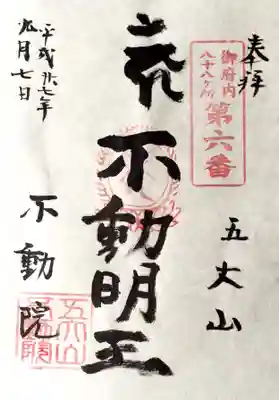 奉拝
御府内
八十八ヶ所
第六番
五大山
不動明王
平成廿七年
九月七日
不動院